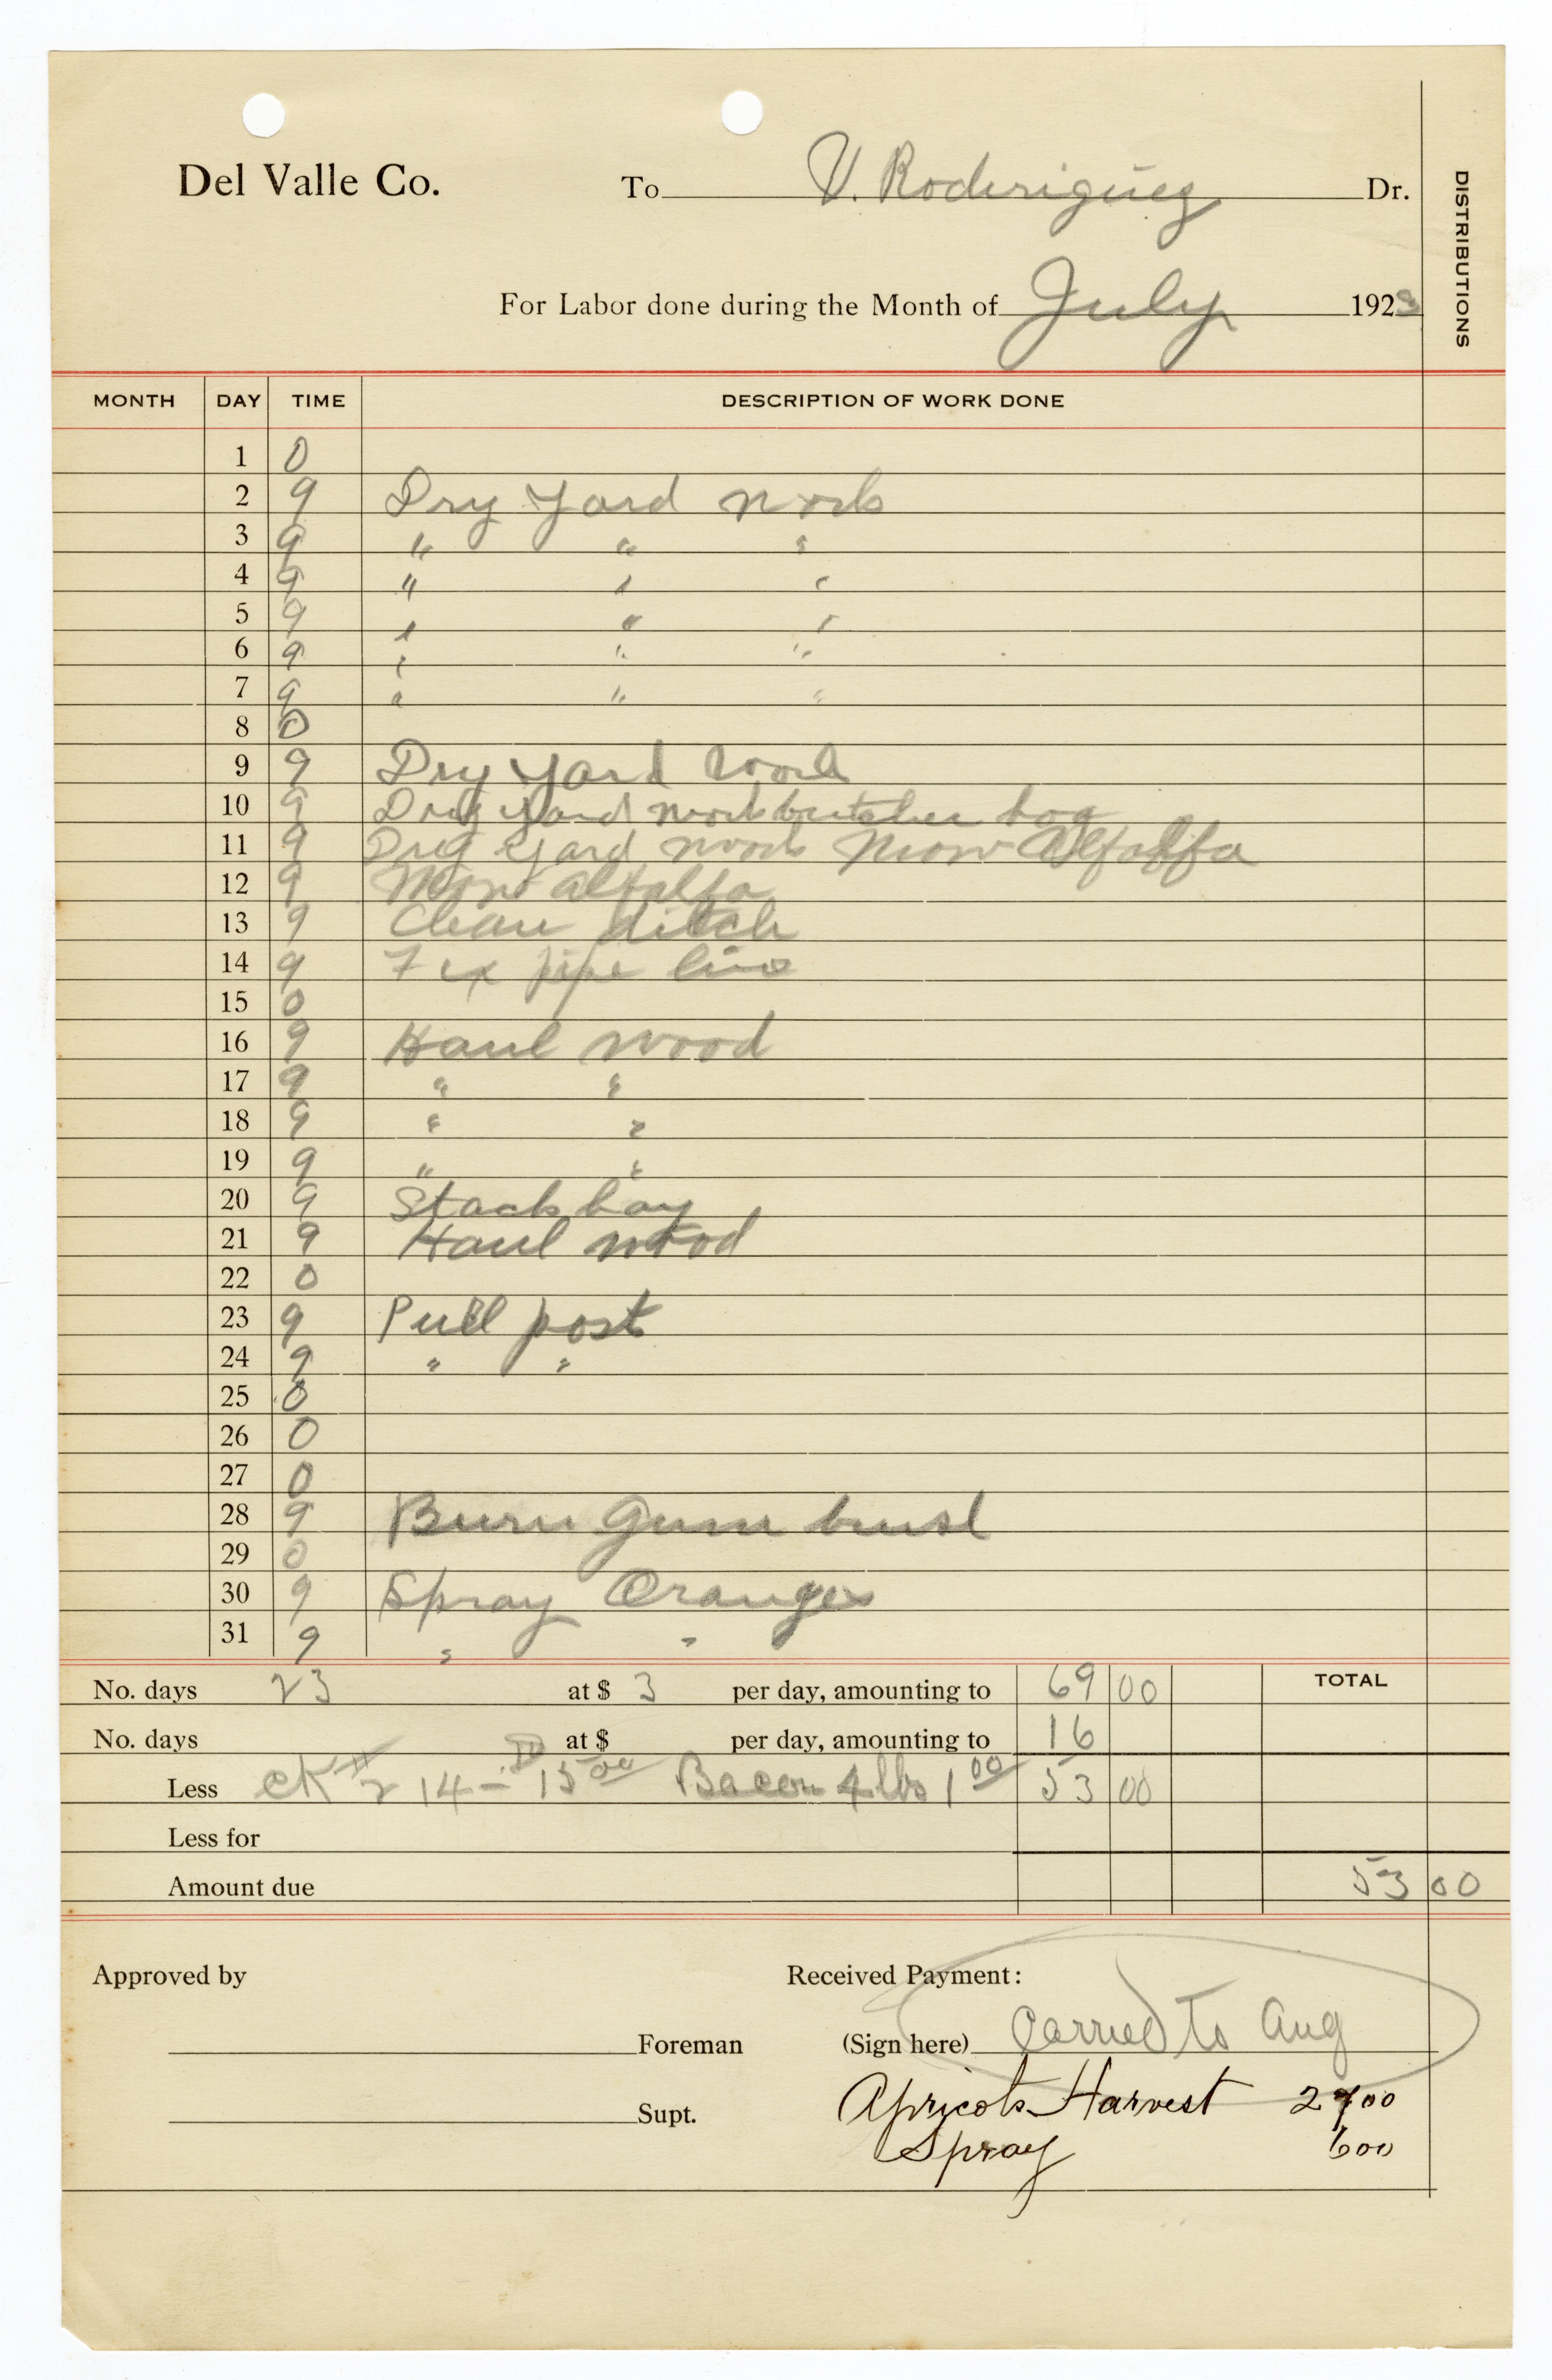 Del Valle Co. To V. Roderiguez Dr.
DISTRIBUTIONS
For Labor done during the Month of July 1923
MONTH DAY TIME DESCRIPTION OF WORK DONE
1 0
2 9 Dry Yard work
3 9 " " "
4 9 " " "
5 9 " " "
6 9 " " "
7 9 " " "
8 0
9 9 Dry Yard work
10 9 Dry Yard work butcher hog
11 9 Dry Yard work Mow Alfalfa
12 9 Mow alfalfa
13 9 Clean ditch
14 9 Fix pipe line
15 0
16 9 Haul wood
17 9 " "
18 9 " "
19 9 " "
20 9 Stack hay
21 9 Haul wood
22 0
23 9 Pull post
24 9 " "
25 0
26 0
27 0
28 9 Burn Gum brush
29 0
30 9 Spray Oranges
31 9 " "
No. days 23 at $ 3 per day, amounting to 69 00 TOTAL
No. days at $ per day, amounting to 16
Less CK # 214 - 15 00 Bacon 4 lbs 1 00 53 00
Less for
Amount due 53 00
Approved by Received Payment:
Foreman (Sign here) Carried To Aug
Supt. Apricots Harvest 2700
Spray 600